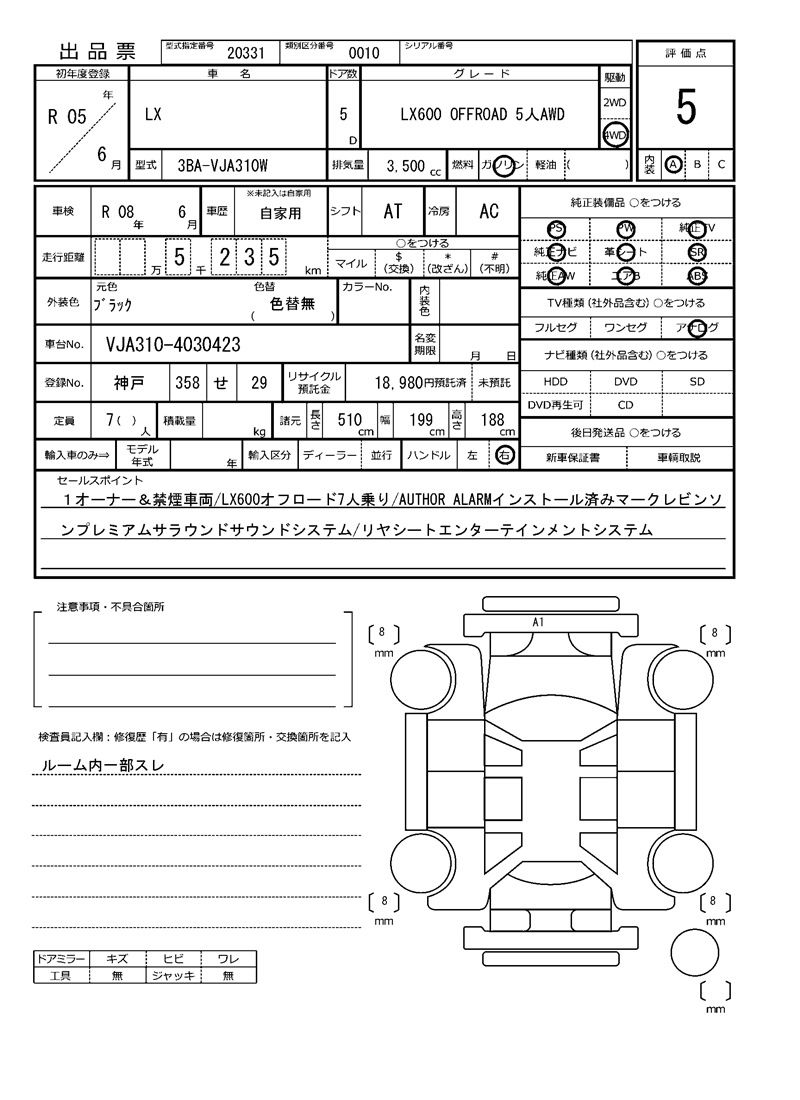 出品票 型式指定番号 20331 類別区分番号 0010 シリアル番号
評価点
5
内装 A B C
初年度登録 車名 ドア数 グレード 駆動
R 05 年 6 月 LX 5 D LX600 OFFROAD 5人AWD 2WD 4WD
型式 3BA-VJA310W 排気量 3,500 cc 燃料 ガソリン 軽油 ( )
車検 R 08 年 6 月 車歴 ※未記入は自家用 自家用 シフト AT 冷房 AC
走行距離 万 5 千 2 3 5 km ○をつける
マイル $(交換) *(改ざん) #(不明)
外装色 元色 ブラック 色替 ( 色替無 ) カラーNo. 内装色
車台No. VJA310-4030423 名変期限 月 日
登録No. 神戸 358 せ 29 リサイクル預託金 18,980円預託済 未預託
定員 7( )人 積載量 kg 諸元 長さ 510 cm 幅 199 cm 高さ 188 cm
輸入車のみ⇒ モデル年式 年 輸入区分 ディーラー 並行 ハンドル 左 右
純正装備品 ○をつける
PS PW 純正TV
純正ナビ 革シート SR
純正AW エアB ABS
TV種類(社外品含む)○をつける
フルセグ ワンセグ アナログ
ナビ種類(社外品含む)○をつける
HDD DVD SD
DVD再生可 CD
後日発送品 ○をつける
新車保証書 車輌取説
セールスポイント
1オーナー&禁煙車両/LX600オフロード7人乗り/AUTHOR ALARMインストール済みマークレビンソ
ンプレミアムサラウンドサウンドシステム/リヤシートエンターテインメントシステム
注意事項・不具合箇所
検査員記入欄:修復歴「有」の場合は修復箇所・交換箇所を記入
ルーム内一部スレ
ドアミラー キズ ヒビ ワレ
工具 無 ジャッキ 無
A1
8 mm
8 mm
8 mm
8 mm
mm